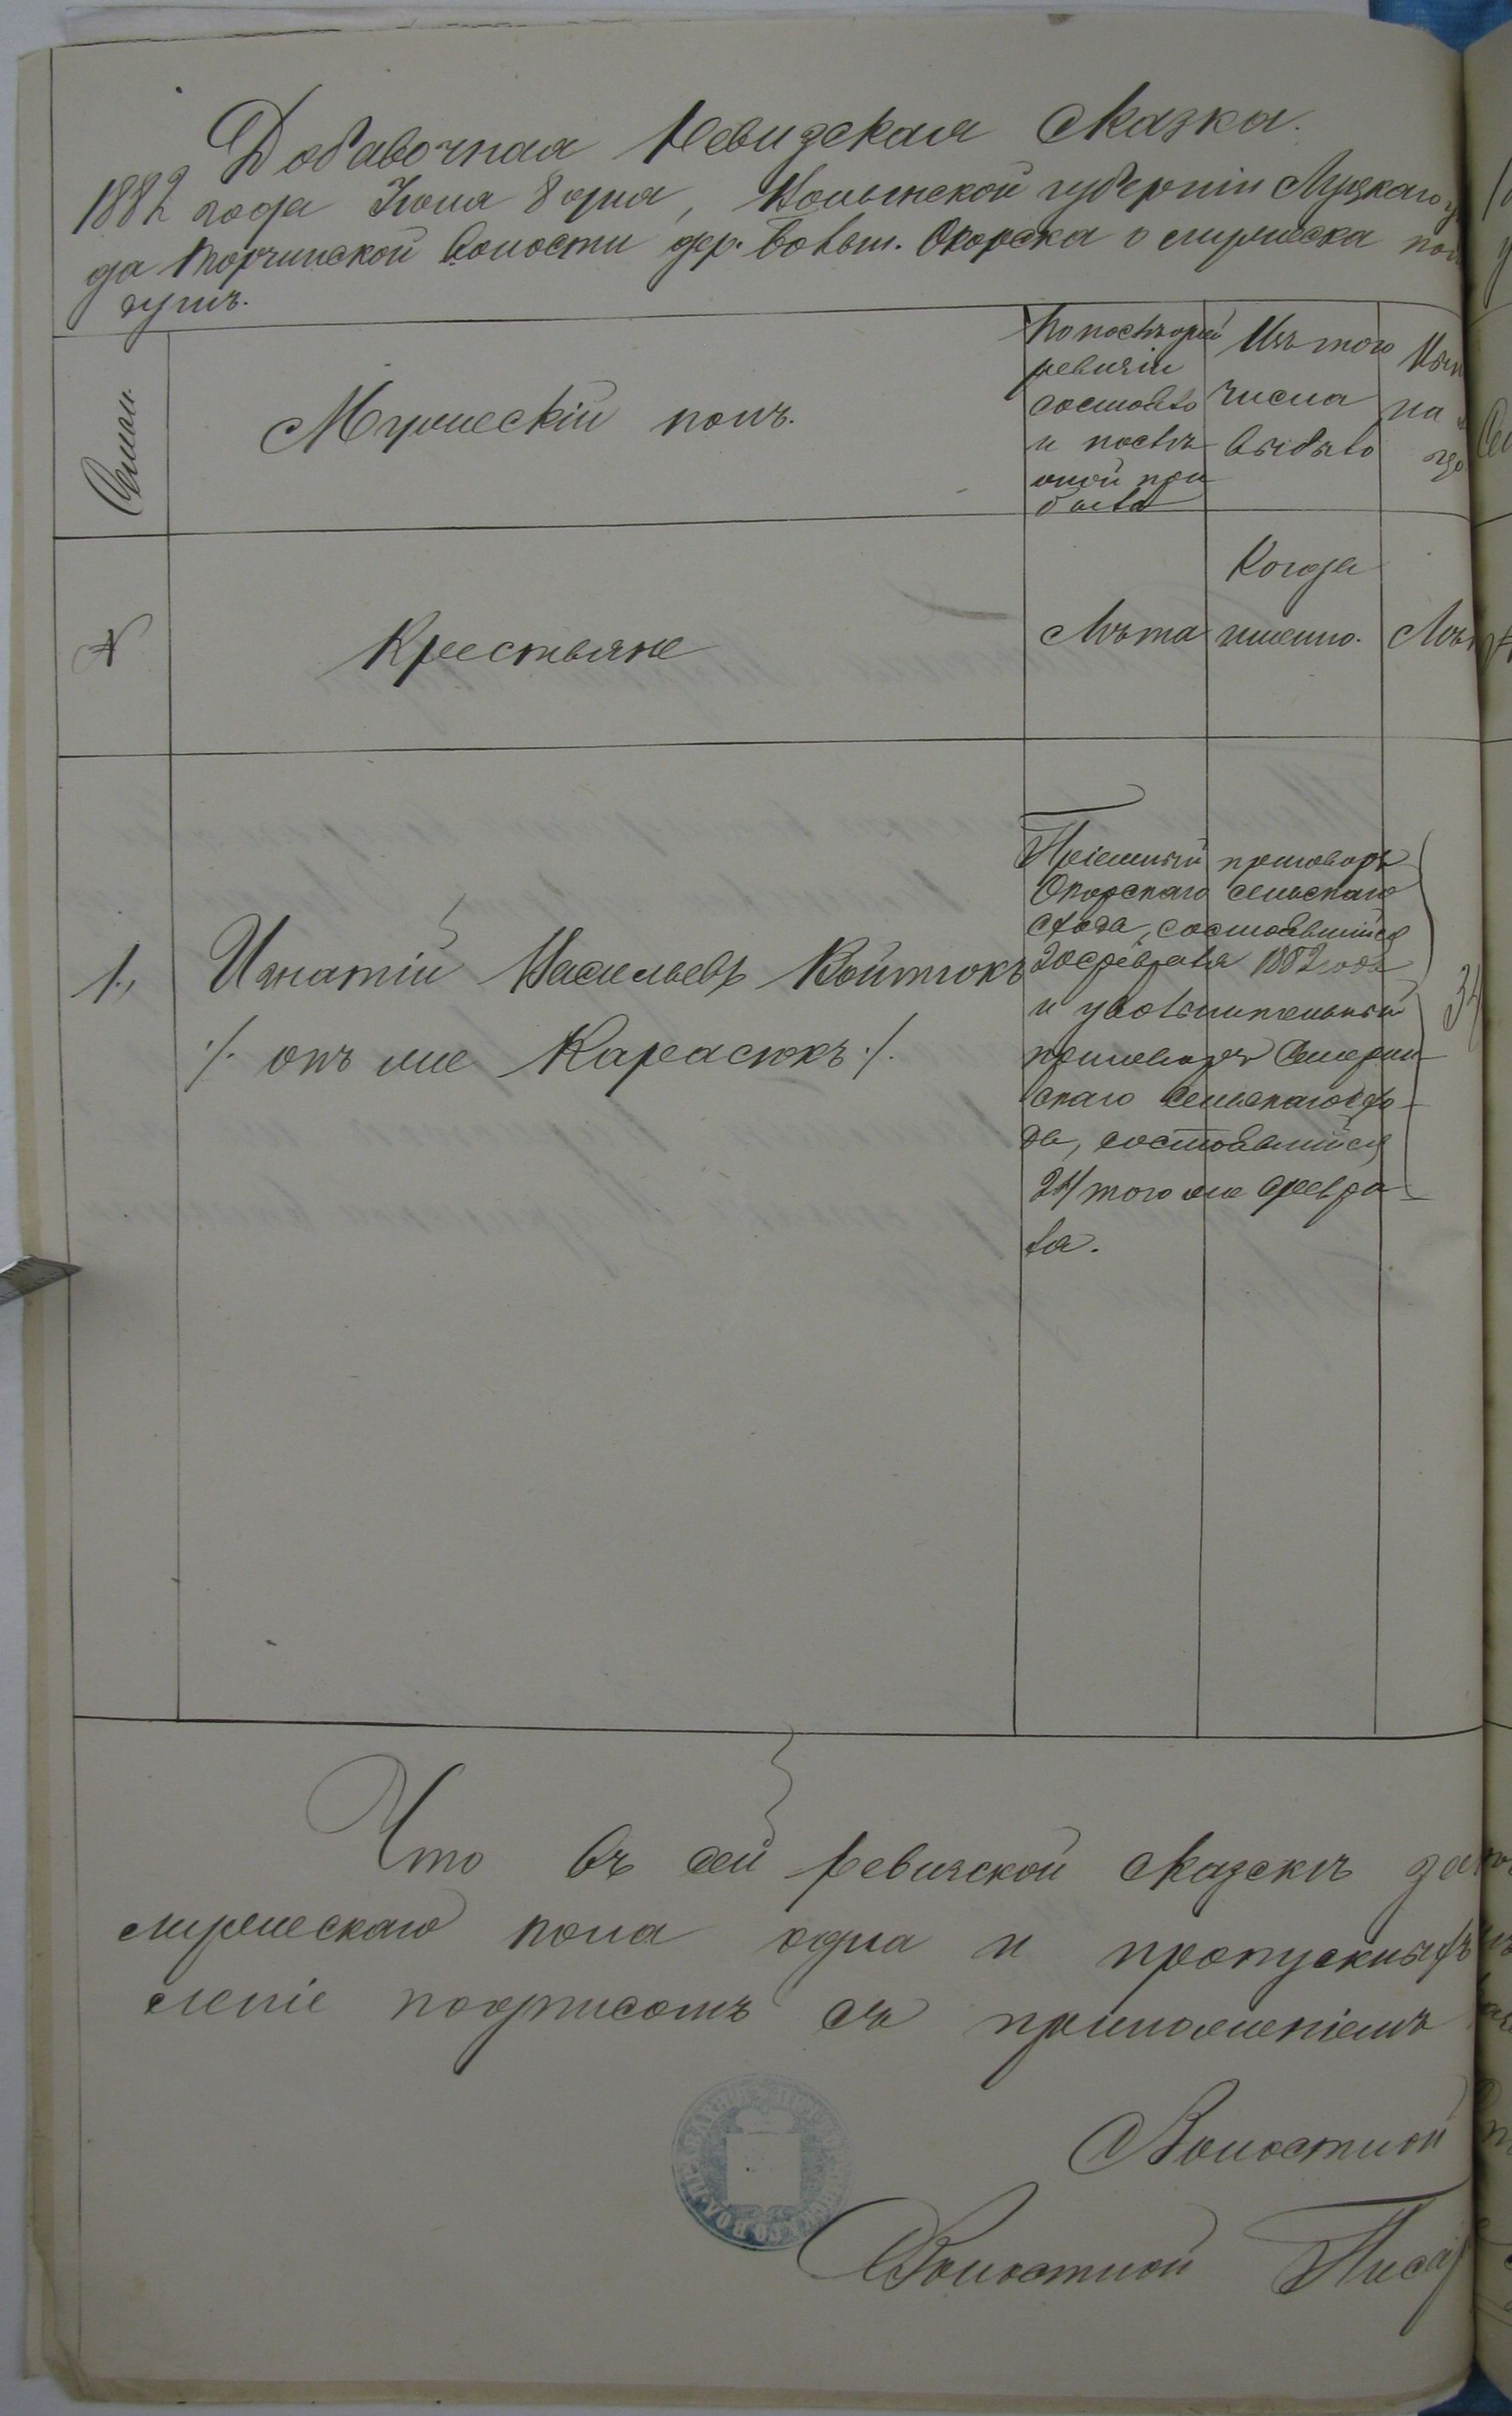 Добавочная Ревизская Сказка.
1882 года Іюня 8 дня, Волынской губерніи Луцкаго уѣ
да Торчинской волости дер. Больш. Окорска о мужеска пол
душъ.
Семьи.
Мужескій полъ.
По послѣдней
ревизіи
состояло
и послѣ
оной при
было
Изъ того
числа
выбыло
Нын
на
№
Крестьяне
Лѣта
Когда
именно.
Лѣт
1.,
Игнатій Васильевъ Войтюкъ
·/. онъ же Карасюкъ ·/.
Пріемный приговоръ
Окорскаго сельскаго
схода, состоявшійся
20 февраля 1882 года
и увольнительный
приговоръ
скаго сельскаго схо-
да, состоявшійся
24 того же февра-
ля.
34
Что въ сей ревизской сказкѣ
мужескаго пола одна и пропускныхъ
леніе подписомъ съ приложеніемъ
Волостной
Волостной Писар